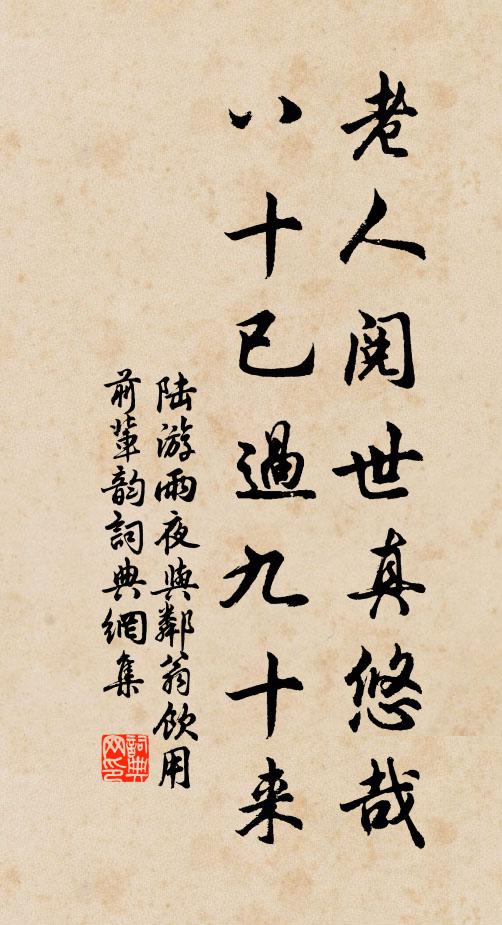 老人阅世真悠哉
八十已過九十来
陆游雨夜與鄰翁飲用
前輩韵詞典網集
詞典
网印